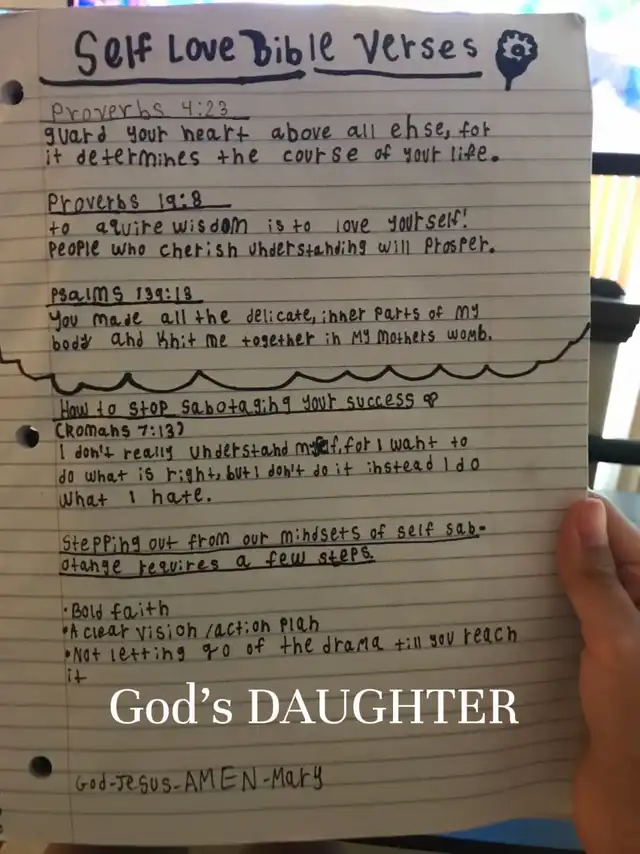 Self Love Bible Verses
Proverbs 4:23
guard your heart above all ehse, for
it determines the course of your life.
Proverbs 19:8
to aquire wisdom is to love yourself!
People who cherish understanding will Prosper.
Psalms 139:13
You made all the delicate, inner parts of my
body and Knit me together in My Mothers womb.
How to stop sabotaging your success
(Romans 7:13)
I don't really understand myself, for I want to
do what is right, but I don't do it instead I do
what I hate.
Stepping out from our mindsets of self sab-
otange requires a few steps.
•Bold faith
•A clear vision /action plan
•Not letting go of the drama till you reach
it
God's DAUGHTER
God-Jesus-AMEN-Mary